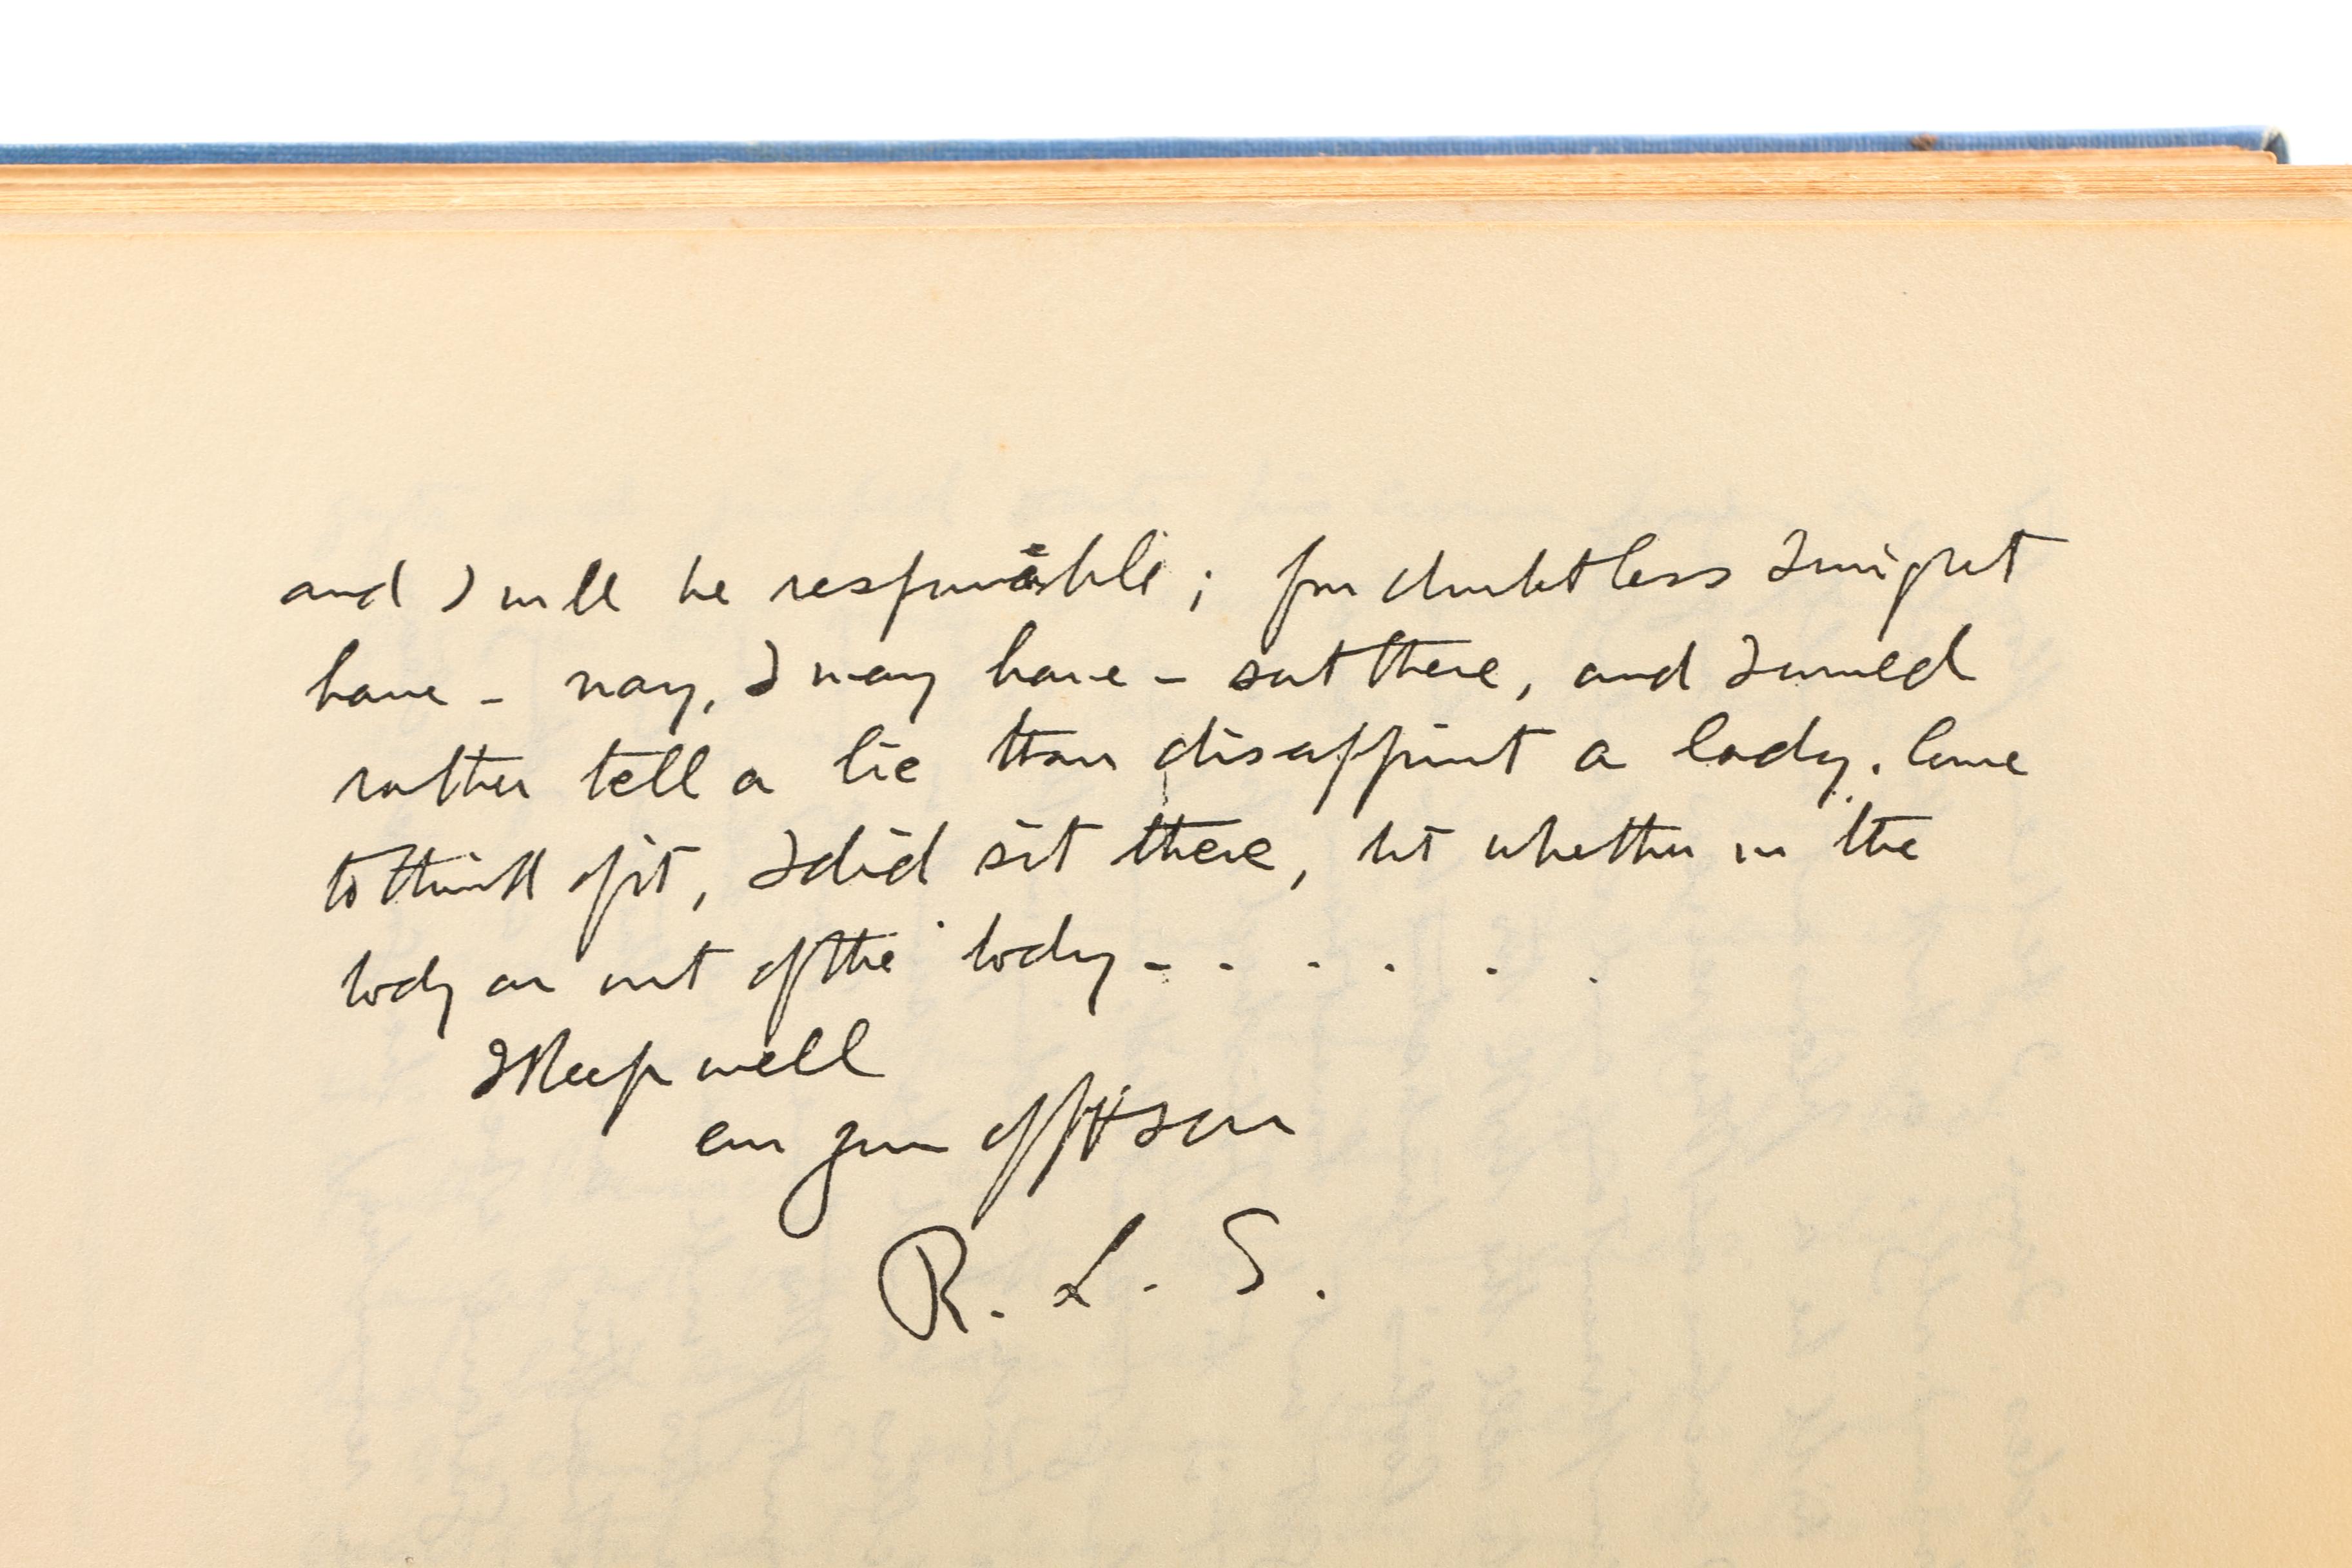 and I will be responsible; for doubtless I might
have - nay, I may have - sat there, and I would
rather tell a lie than disappoint a lady. Come
to think of it, I did sit there, but whether in the
body or out of the body - . . . . .
Sleep well
our son
R. L. S.